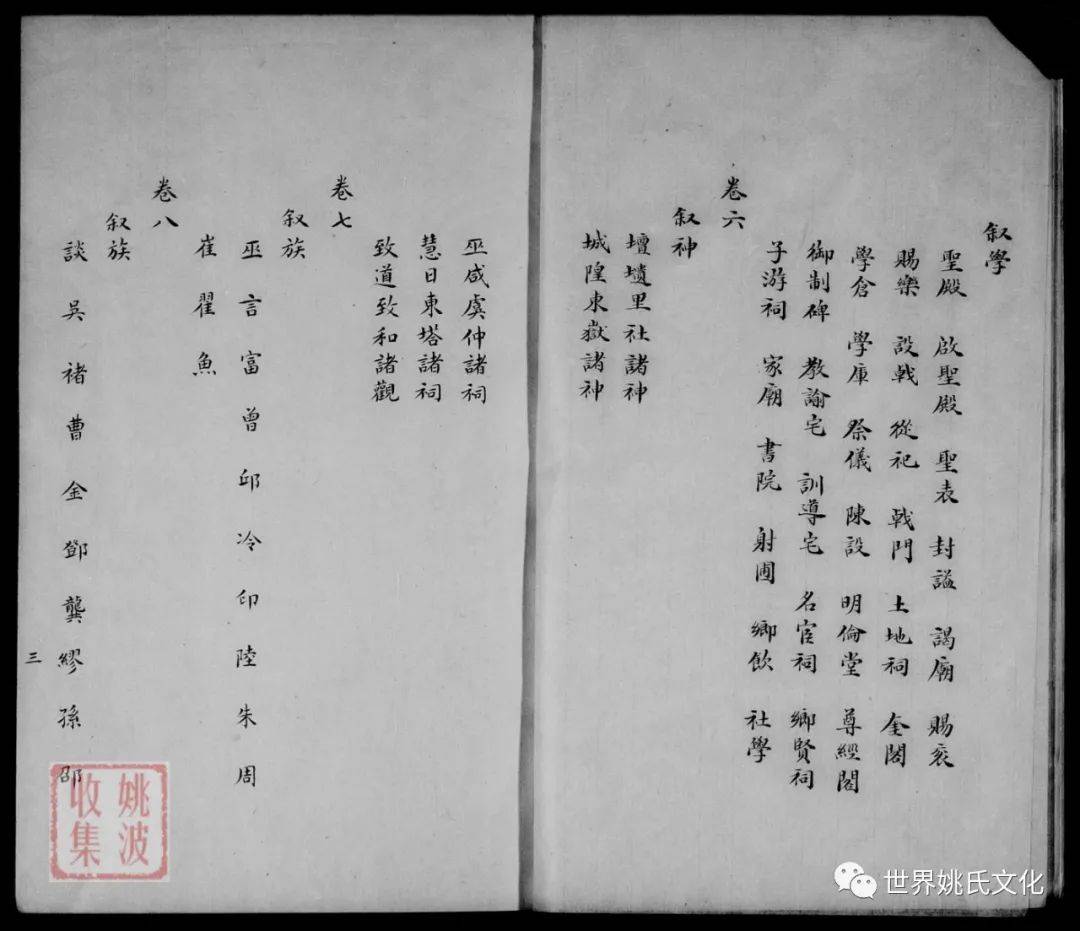 叙學
聖殿 啟聖殿 聖表 封謚 謁廟 賜衮
賜樂 設戟 從祀 戟門 土地祠 奎閣
學倉 學庫 祭儀 陳設 明倫堂 尊經閣
御制碑 教諭宅 訓導宅 名宦祠 鄉賢祠
子游祠 家廟 書院 射圃 鄉飲 社學
卷六
叙神
壇壝里社諸神
城隍東嶽諸神
巫咸虞仲諸祠
慧日東塔諸祠
致道致和諸觀
卷七
叙族
巫 言 富 曾 邱 冷 印 陸 朱 周
崔 翟 魚
卷八
叙族
談 吳 褚 曹 金 鄧 龔 繆 孫 邵
三
姚波
收集
世界姚氏文化